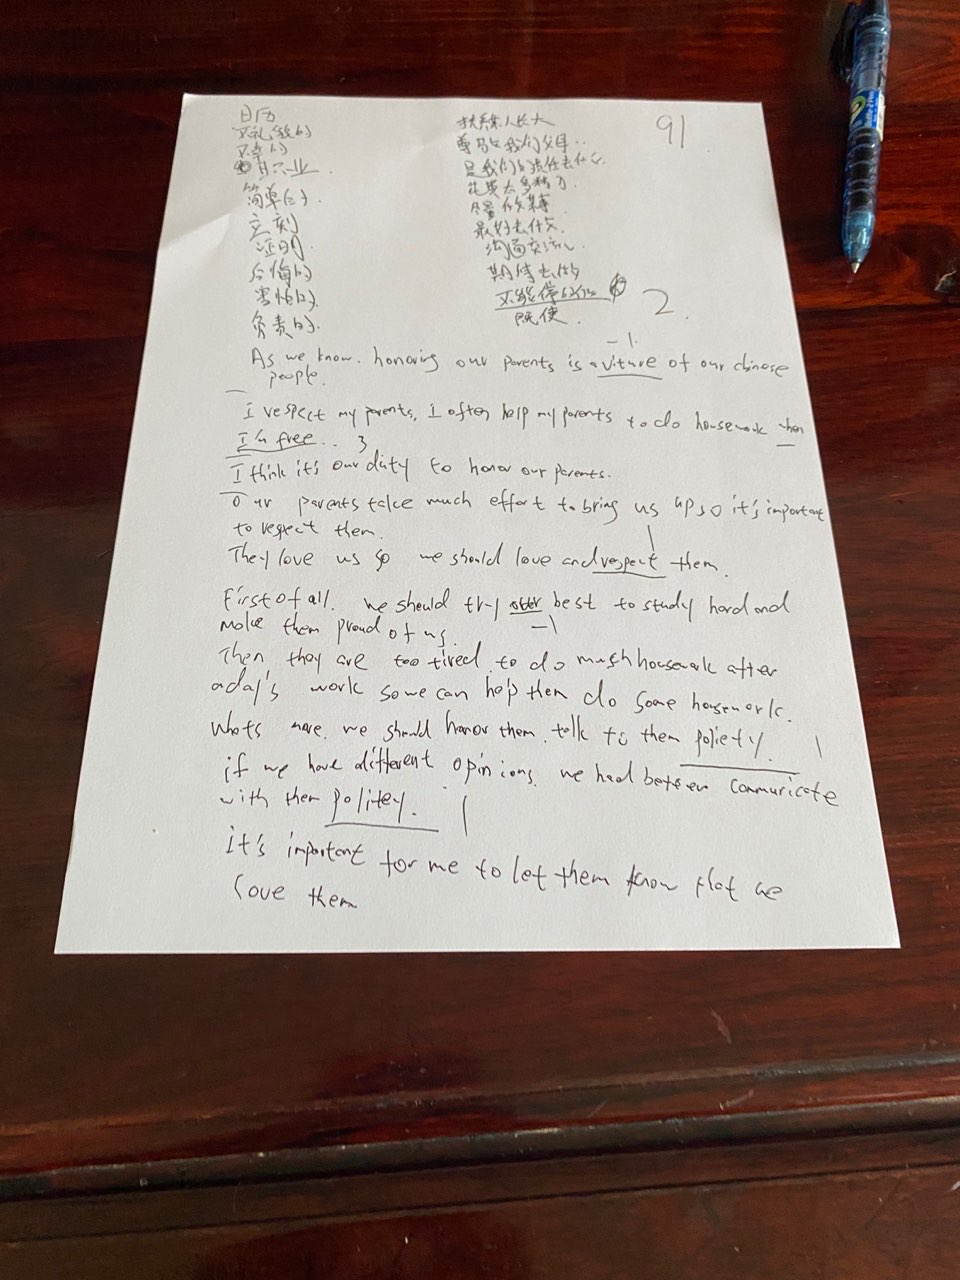 日历
不礼貌的
简单的
立刻
证明
后悔的
害怕的
负责的
扶养某人长大
尊敬我们父母
是我们的责任去什么
花费太多精力
尽量做某事
最好去什么
沟通交流
期待去做
既使
91
2
-1
As we know. honoring our parents is a viture of our chinese
people.
I respect my parents, I often help my parents to do housework when
I'm free.. 3
I think it's our duty to honor our parents.
Our parents take much effort to bring us up so it's important
to respect them.
They love us so we should love and respect them.
First of all. we should try best to study hard and
make them proud of us.
-1
Then, they are too tired to do much housework after
a day's work so we can help them do some housework.
Whats more. we should honor them. talk to them poliety. 1
if we have different opinions. we had better communicate
with them politey. 1
it's important for me to let them know that we
love them